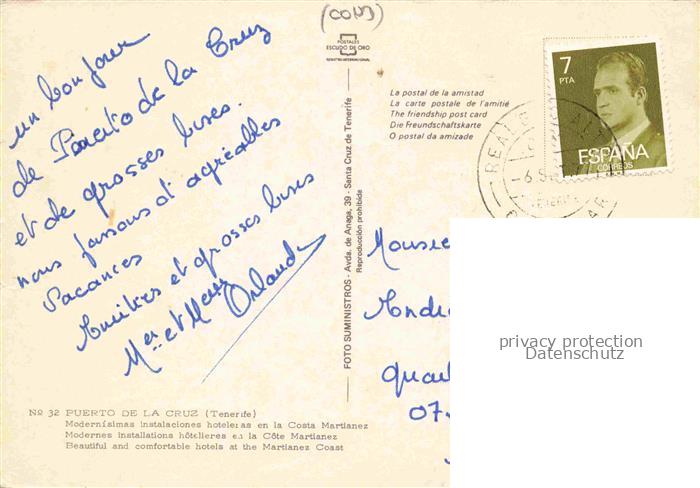 (COUD)
POSTALES
ESCUDO DE ORO
un bonjour
de Puerto de la Cruz
et de grosses bises.
nous passons d'agréables
vacances
Amitiés et grosses bises
Mer et Mme Orlando
Nº 32 PUERTO DE LA CRUZ (Tenerife)
Modernísimas instalaciones hoteleras en la Costa Martianez
Modernes installations hôtelieres en la Côte Martianez
Beautiful and comfortable hotels at the Martianez Coast
FOTO SUMINISTROS - Avda. de Anaga, 39 - Santa Cruz de Tenerife
Reproducción prohibida
La postal de la amistad
La carte postale de l'amitié
The friendship post card
Die Freundschaftskarte
O postal da amizade
7
PTA
ESPAÑA
CORREOS
REALEJO ALTO
Monsie
Andr
Quart
07
privacy protection
Datenschutz